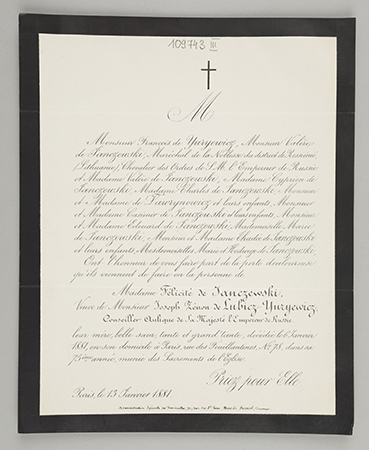 109743 III
M
Monsieur François de Yuryewicz, Monsieur Valère
de Janczewski, Maréchal de la Noblesse du district de Rossienie
(Lithuanie) Chevalier des Ordres de S.M. l'Empereur de Russie
et Madame Valère de Janczewski, Madame Cyprien de
Janczewski, Madame Charles de Janczewski, Monsieur
et Madame de Dawrynowicz et leurs enfants, Monsieur
et Madame Casimir de Janczewski et leurs enfants, Monsieur
et Madame Edouard de Janczewski, Mademoiselle Marie
de Janczewski, Monsieur et Madame Charles de Janczewski
et leurs enfants, Mesdemoiselles Marie et Hedwige de Janczewski,
Ont l'honneur de vous faire part de la perte douloureuse
qu'ils viennent de faire en la personne de
Madame Félicité de Janczewski,
Veuve de Monsieur Joseph Zénon de Lubicz Yuryewicz,
Conseiller Aulique de Sa Majesté l'Empereur de Russie
leur mère, belle-sœur, tante et grand'tante, décédée le 6 Janvier
1881, en son domicile à Paris, rue des Feuillantines, No. 78, dans sa
75ème année, munie des Sacrements de l'Eglise.
Priez pour Elle
Paris, le 13 Janvier 1881.